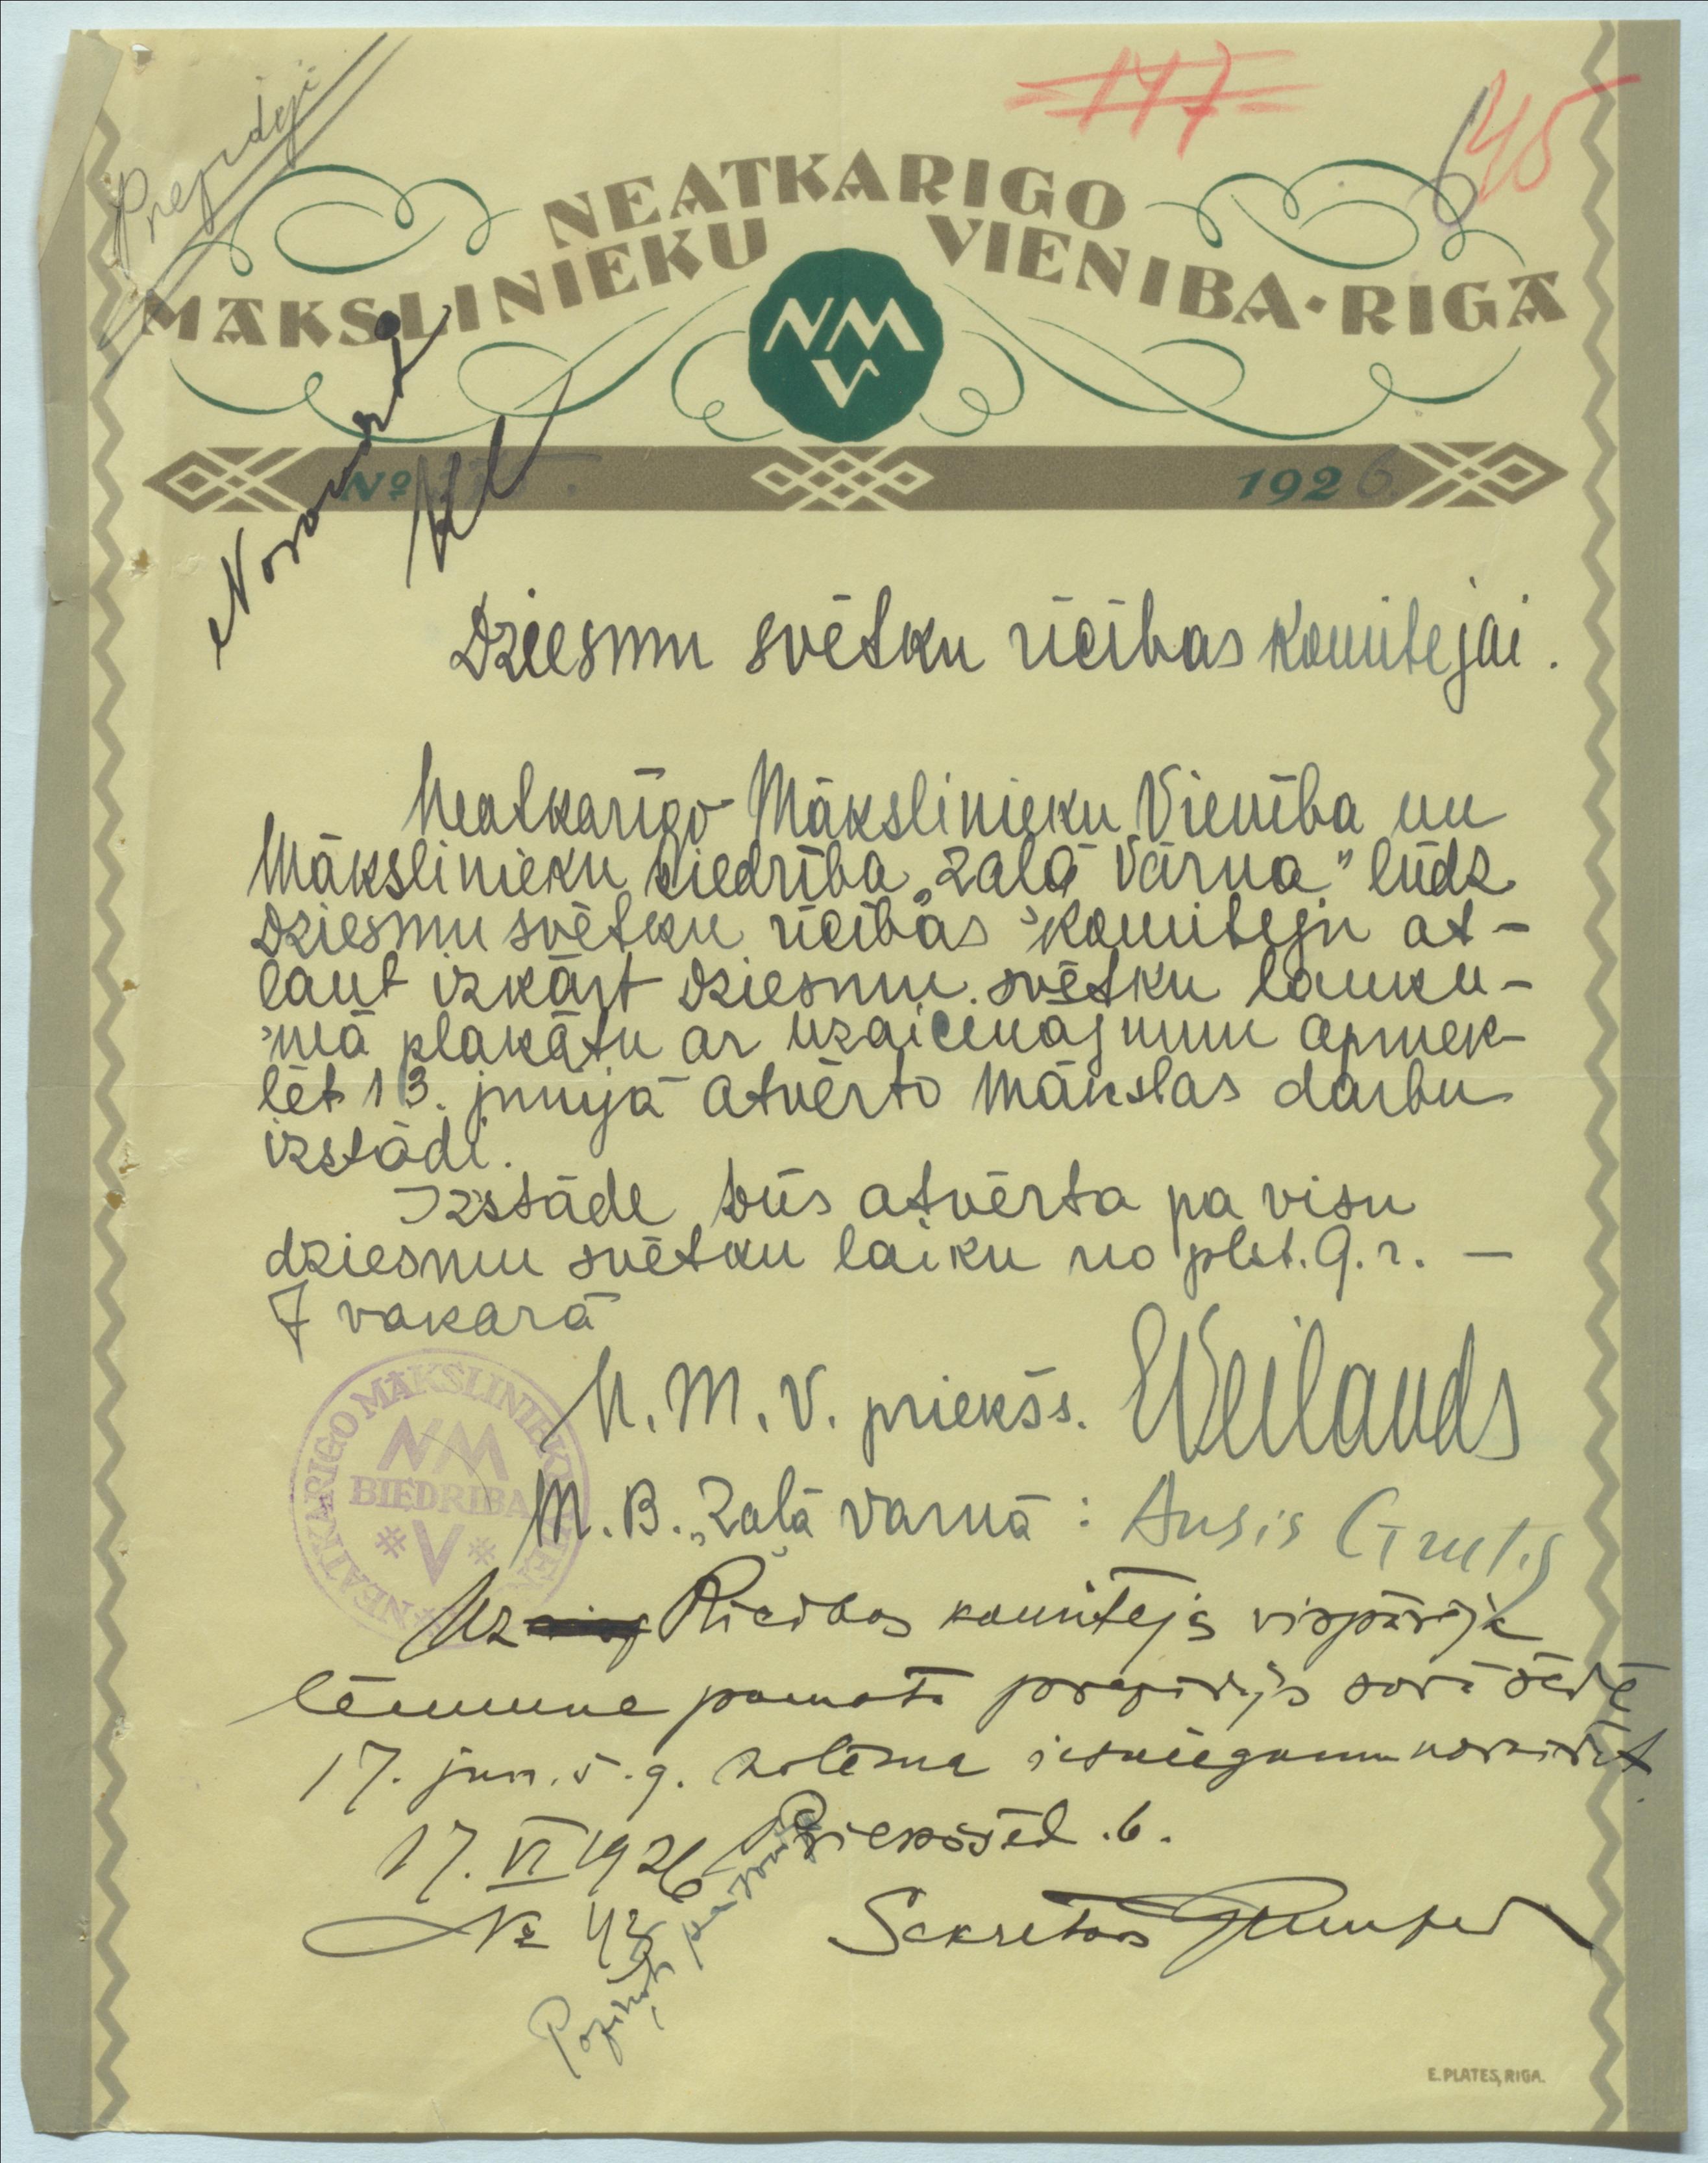 147
45
Prezidiji
NEATKARIGO
MĀKSLINIEKU VIENIBA · RIGĀ
NMV
Noraidīt
No 1926.
Dziesmu svētku rīcības komitejai.
Neatkarīgo Mākslinieku Vienība un
Mākslinieku biedrība „Zaļā Vārna" lūdz
Dziesmu svētku rīcības komiteju at-
ļaut izkārt Dziesmu svētku lauku-
mā plakātu ar uzaicinājumu apmek-
lēt 13. jūnijā atvērto mākslas darbu
izstādi.
Izstāde būs atvērta pa visu
dziesmu svētku laiku no plst. 9. r. —
7 vakarā
N. M. V. priekšs. EWeilands
M. B. „Zaļā Varnā : Ansis
NEATKARIGO MĀKSLINIEKU VIEN
NM
BIEDRIBA
V
Uz Rīcības komitejas vispārējā
lēmuma pamata prezidijs savā sēdē
17. jun. š. g. nolēma iesniegumu noraidīt
17. VI 1926 Priekšsēd. b.
No 42
Sekretars
Paziņots
E. PLATES, RIGA.